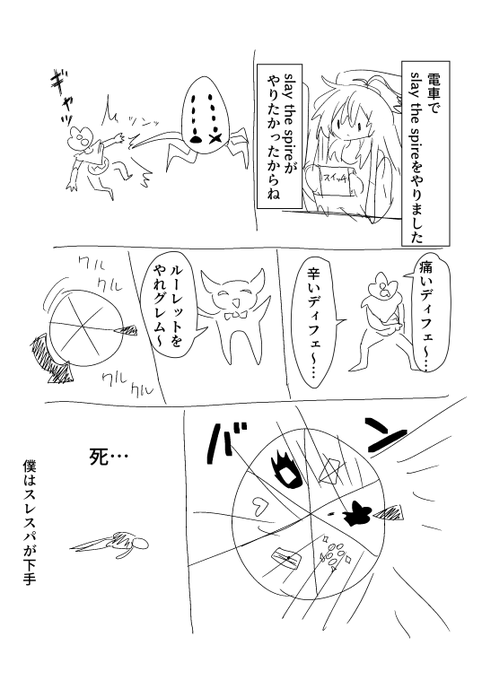 電車で
slay the spireをやりました
slay the spireが
やりたかったからね
スイッチ
ギャッ
痛いディフェ～…
辛いディフェ～…
ルーレットを
やれグレム～
クル
クル
クル
クル
バン
死…
僕はスレスパが下手